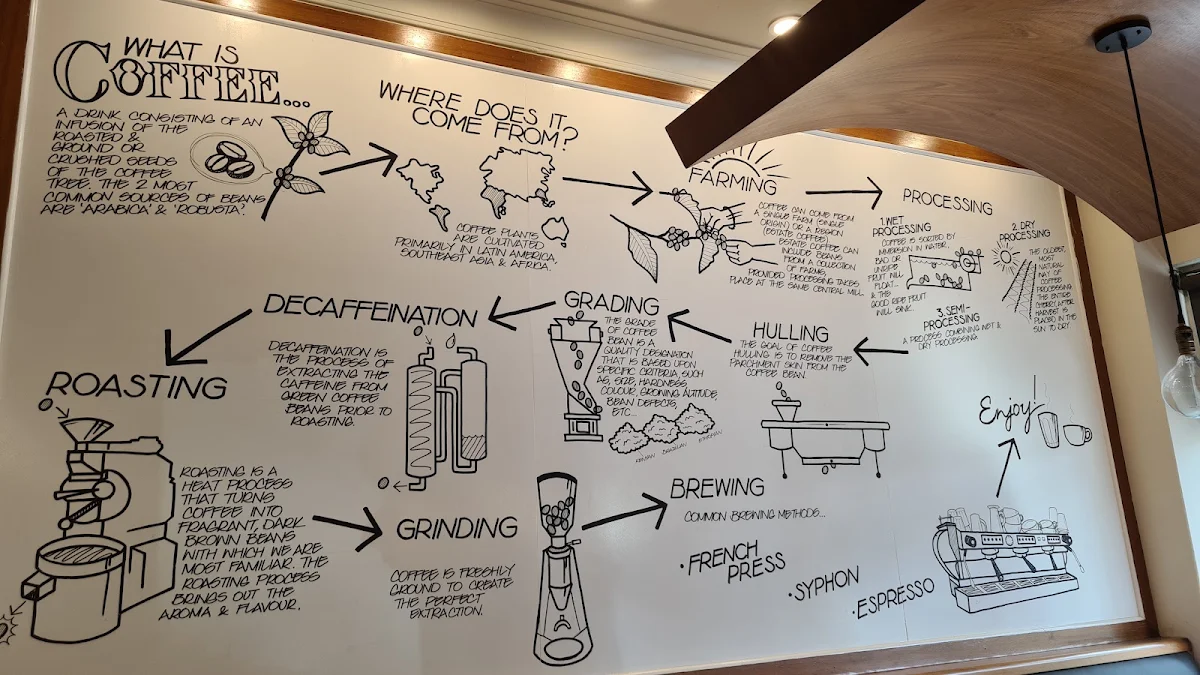 WHAT IS
COFFEE...
A DRINK CONSISTING OF AN
INFUSION OF THE
ROASTED &
GROUND OR
CRUSHED SEEDS
OF THE COFFEE
TREE. THE 2 MOST
COMMON SOURCES OF BEANS
ARE 'ARABICA' & 'ROBUSTA'.
WHERE DOES IT
COME FROM?
COFFEE PLANTS
ARE CULTIVATED
PRIMARILY IN LATIN AMERICA,
SOUTHEAST ASIA & AFRICA.
FARMING
COFFEE CAN COME FROM
A SINGLE FARM (SINGLE
ORIGIN) OR A REGION
(ESTATE COFFEE)
ESTATE COFFEE CAN
INCLUDE BEANS
FROM A COLLECTION
OF FARMS,
PROVIDED PROCESSING TAKES
PLACE AT THE SAME CENTRAL MILL.
PROCESSING
1. WET
PROCESSING
COFFEE IS SORTED BY
IMMERSION IN WATER.
BAD OR
UNRIPE
FRUIT WILL
FLOAT...
& THE
GOOD RIPE FRUIT
WILL SINK.
2. DRY
PROCESSING
THE OLDEST,
MOST
NATURAL
WAY OF
COFFEE
PROCESSING
THE ENTIRE
CHERRY AFTER
HARVEST IS
PLACED IN THE
SUN TO DRY
3. SEMI-
PROCESSING
A PROCESS COMBINING WET &
DRY PROCESSING
HULLING
THE GOAL OF COFFEE
HULLING IS TO REMOVE THE
PARCHMENT SKIN FROM THE
COFFEE BEAN.
GRADING
THE GRADE
OF COFFEE
BEAN IS A
QUALITY DESIGNATION
THAT IS BASED UPON
SPECIFIC CRITERIA, SUCH
AS, SIZE, HARDNESS,
COLOUR, GROWING ALTITUDE,
BEAN DEFECTS,
ETC...
KENYAN BRAZILIAN
DECAFFEINATION
DECAFFEINATION IS
THE PROCESS OF
EXTRACTING THE
CAFFEINE FROM
GREEN COFFEE
BEANS PRIOR TO
ROASTING.
ROASTING
ROASTING IS A
HEAT PROCESS
THAT TURNS
COFFEE INTO
FRAGRANT, DARK
BROWN BEANS
WITH WHICH WE ARE
MOST FAMILIAR. THE
ROASTING PROCESS
BRINGS OUT THE
AROMA & FLAVOUR.
GRINDING
COFFEE IS FRESHLY
GROUND TO CREATE
THE PERFECT
EXTRACTION.
BREWING
COMMON BREWING METHODS...
• FRENCH
PRESS
• SYPHON
• ESPRESSO
Enjoy!